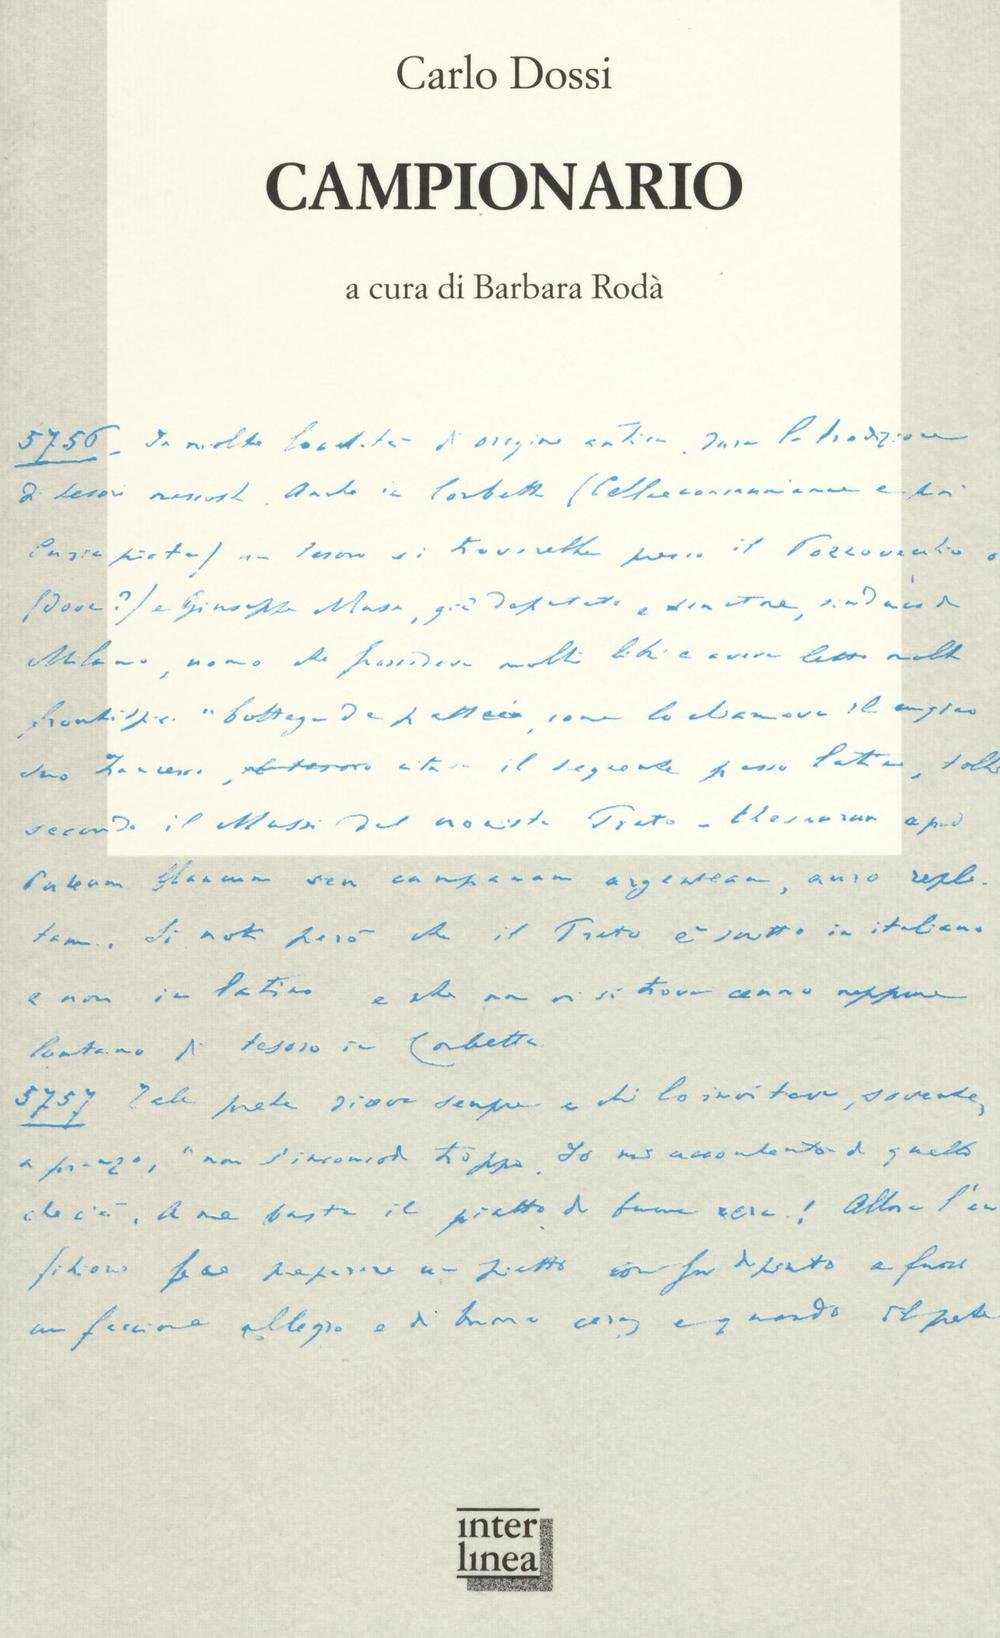 Carlo Dossi
CAMPIONARIO
a cura di Barbara Rodà
5756. In molte località di origine antica dura la tradizione
di tesori nascosti. Anche in Corbetta
un tesoro si troverebbe presso il Pozzovecchio
(dove?) e Giuseppe Mussi, già deputato e senatore, sindaco di
Milano, uomo che possedeva molti libri e aveva letto molti
frontispizi "bottega da come lo chiamava il
suo citava il seguente passo latino,
secondo il Mussi dal cronista Trato - thesaurum apud
seu campanam argenteam, auro reple-
tam. Si noti però che il Trato è scritto in italiano
e non in latino e che non vi si trova cenno neppure
lontano di tesoro in Corbetta.
5757 Tale prete diceva sempre a chi lo invitava, sovente,
a pranzo, "non s'incomodi troppo. Io mi accontento di quello
che c'è. A me basta il piatto di buona cera! Allora l'an
fitrione fece preparare un piatto con su dipinto a fuoco
un faccione allegro e di buona cera, e quando il prete
inter
linea